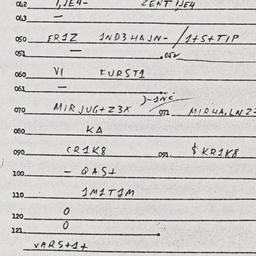 042 1,JE4- ZENTIJE4
043 —
050 FR1Z 1ND3HAJN-/1+5+TIP
051 — .052
060 VI FURST1
061 — )-1NC
070 MIRJUG+Z3X 071 MIRHA,LNZ
080 KA
090 CR1K8 091 $KR1K8
100 - QAS+
110 1M1T1M
120 0
121 0
VARS+1+